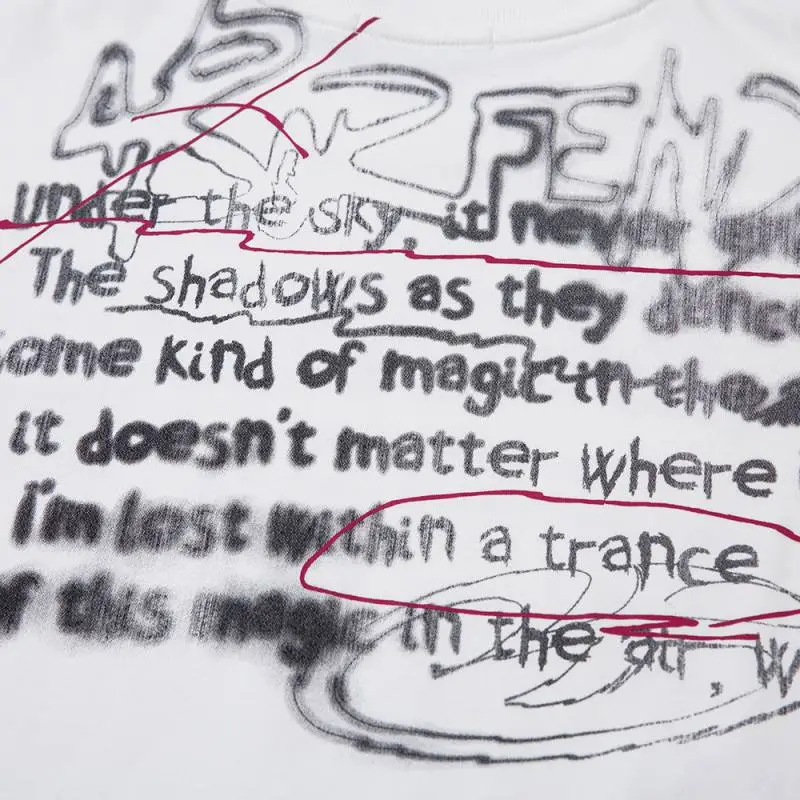 under the sky, it never
The shadows as they dance
some kind of magic in the
it doesn't matter where
I'm lost within a trance
of this magic in the air, w